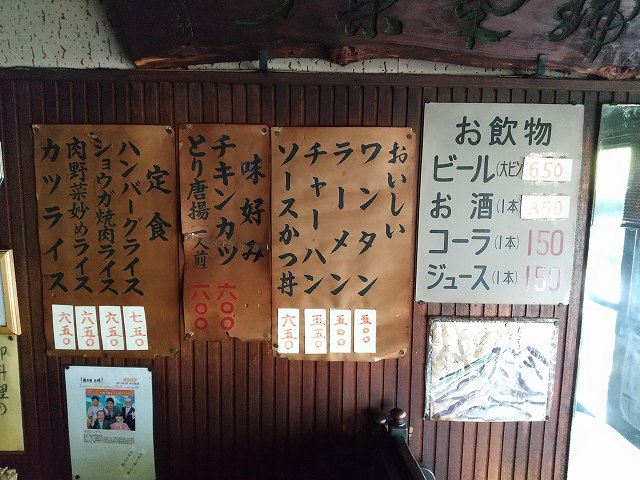 お飲物
ビール(大ビン) 650
お酒(1本) 350
コーラ(1本) 150
ジュース(1本) 150
おいしい
ワンタン 五〇〇
ラーメン 五〇〇
チャーハン 五五〇
ソースかつ丼 六五〇
味好み
チキンカツ 六〇〇
とり唐揚 一人前 六〇〇
定食
ハンバーグライス 七五〇
ショウガ焼肉ライス 六五〇
肉野菜炒めライス 六五〇
カツライス 六五〇